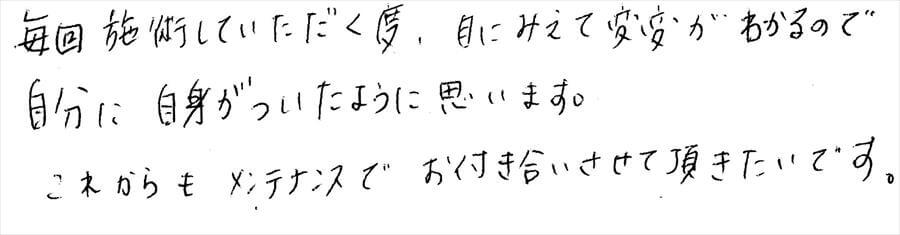 毎回施術していただく度、目にみえて変変がわかるので
自分に自身がついたように思います。
これからもメンテナンスでお付き合いさせて頂きたいです。